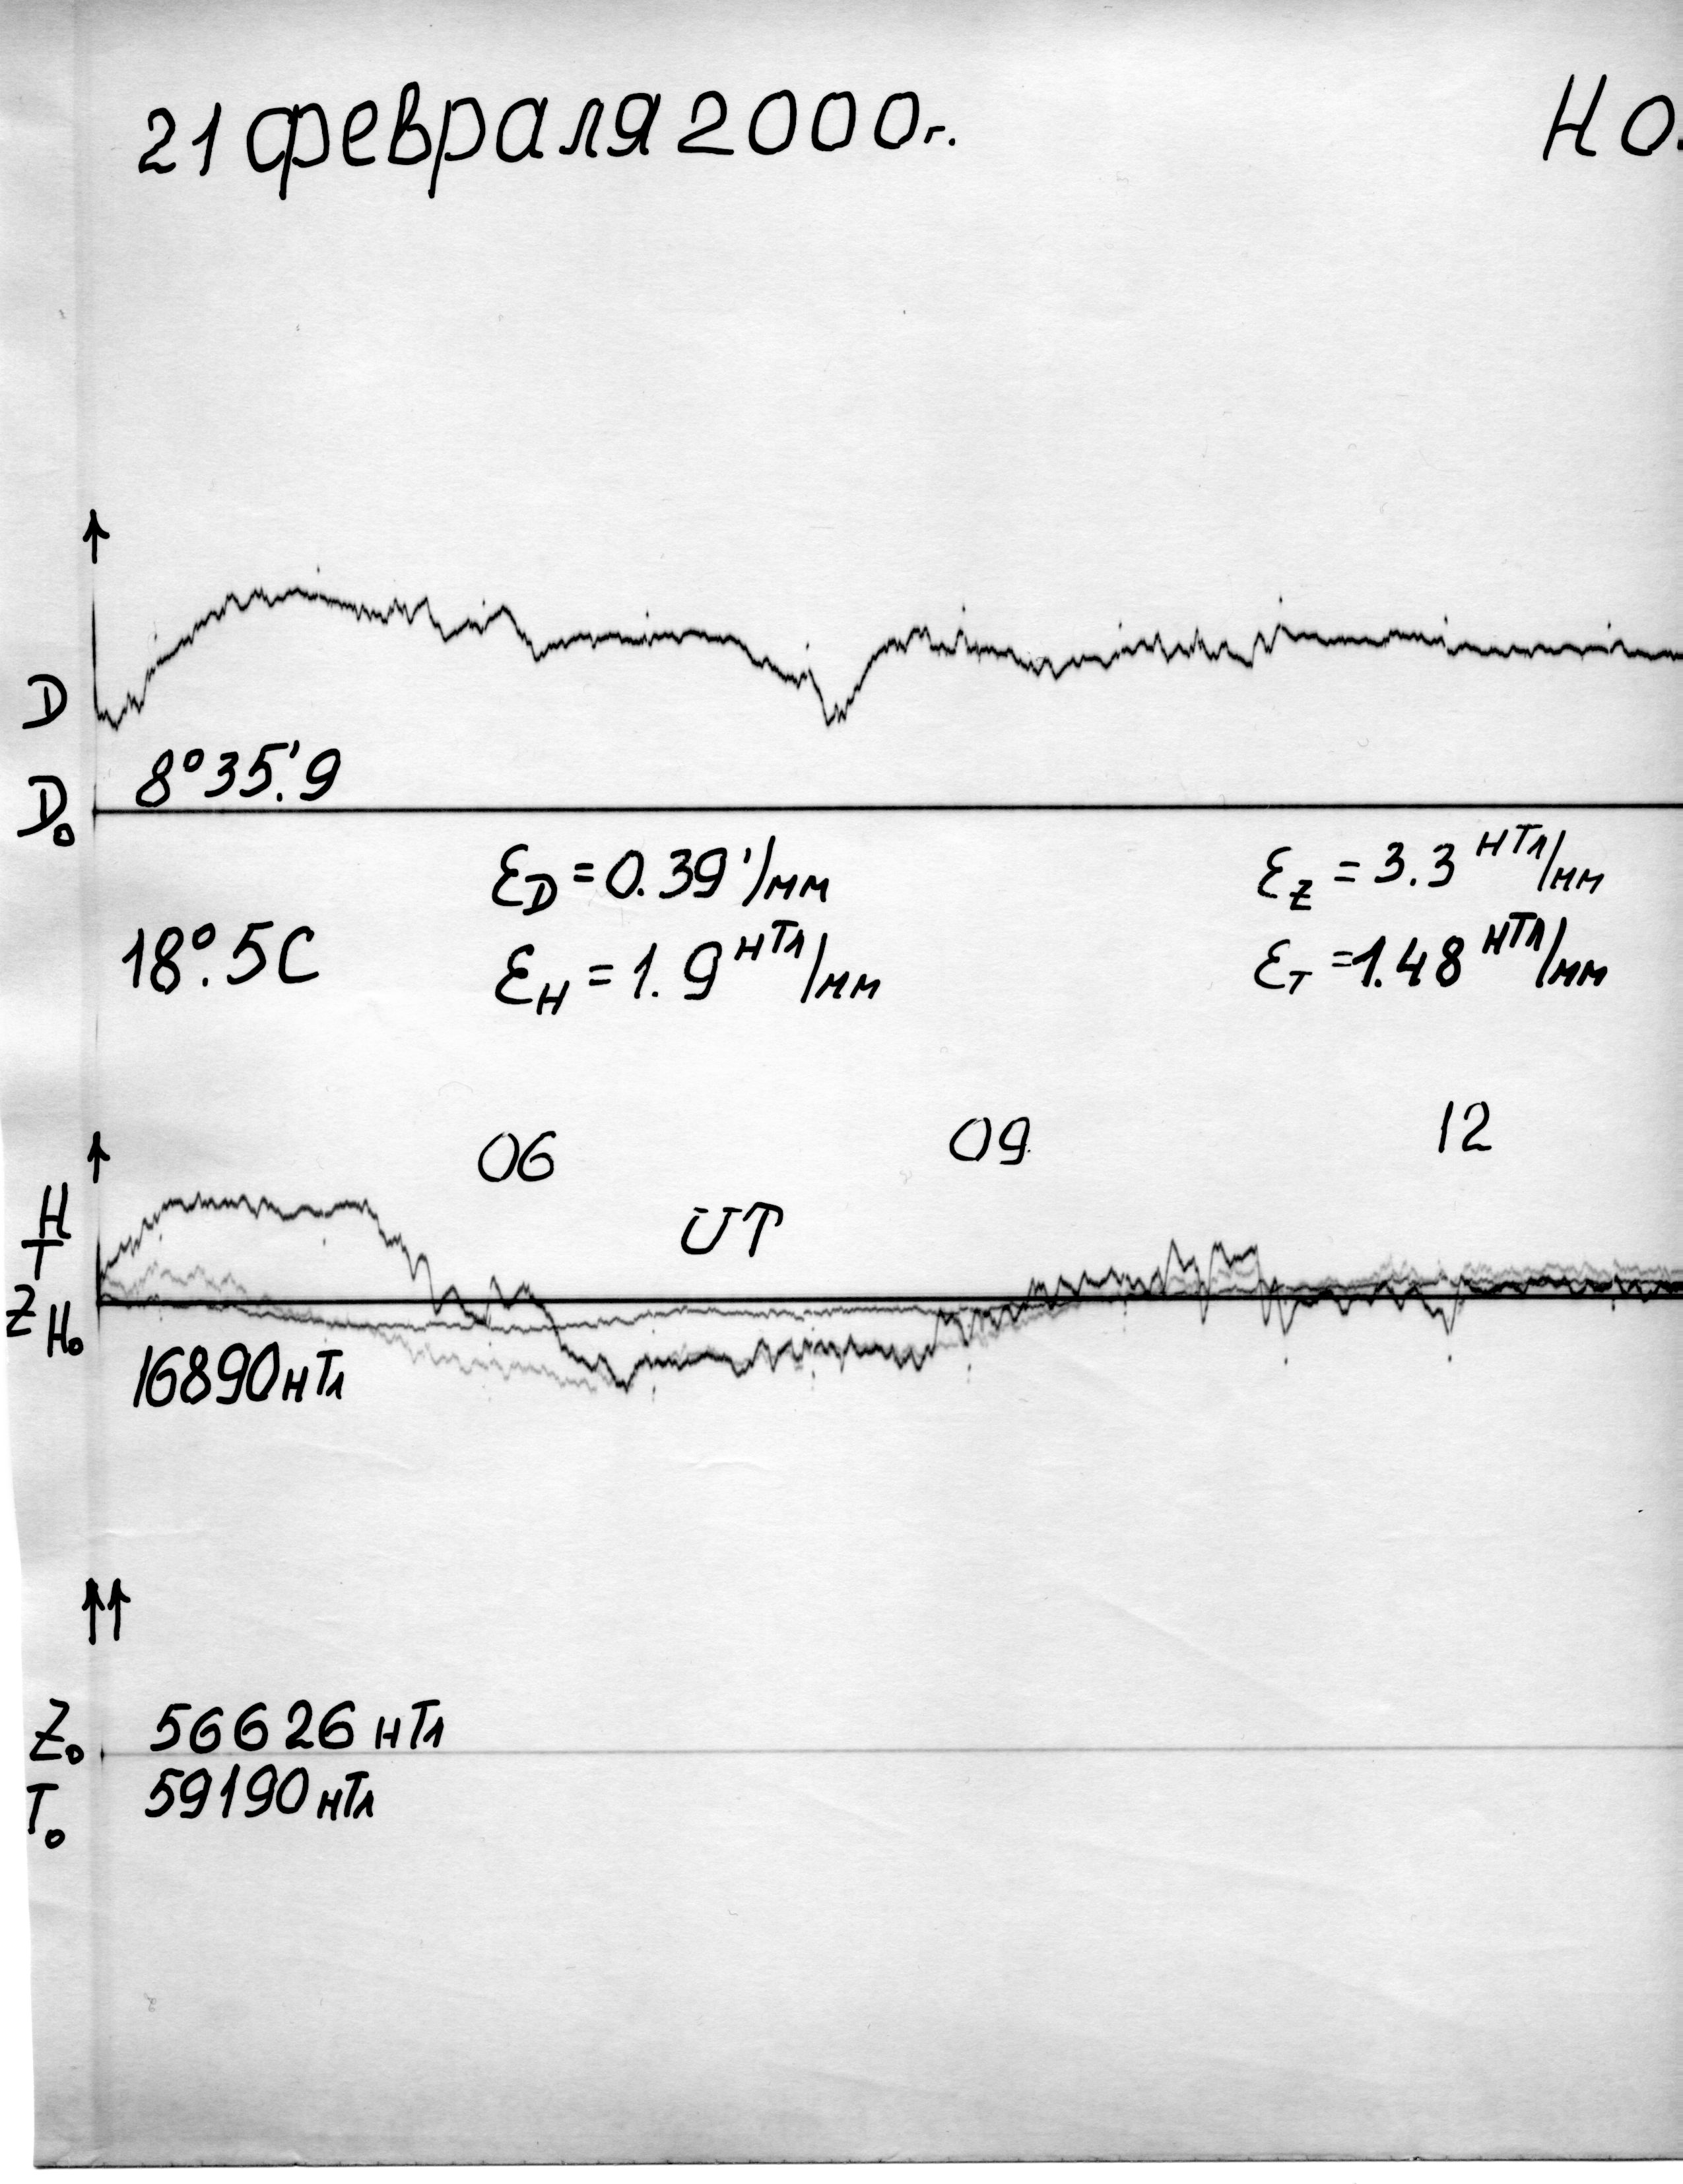 21 февраля 2000г. НО
D
8°35.'9
D₀
ԐD = 0.39 '/мм
ԐZ = 3.3 нТл/мм
18°.5С
ԐH = 1.9 нТл/мм
ԐT = 1.48 нТл/мм
06
09
12
H
T
UT
Z
H₀
16890 нТл
Z₀ 56626 нТл
T₀ 59190 нТл